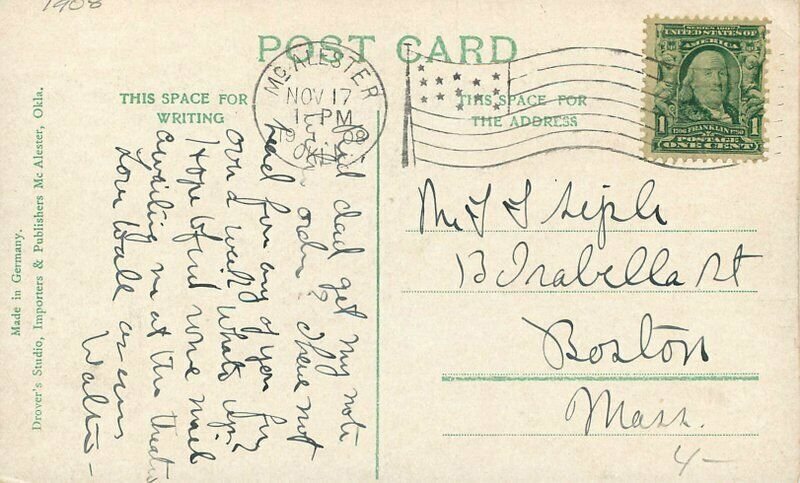 1908
POST CARD
THIS SPACE FOR
WRITING
THIS SPACE FOR
THE ADDRESS
McALESTER
NOV 17
1 PM
1908
OKLA.
SERIES 1902
UNITED STATES OF
AMERICA
1
1
1706 FRANKLIN 1790
POSTAGE
ONE CENT
Did dad get my note
with order? I have not
head from any of you for
over a week what's up?
Hope to find some mail
awaiting me at the theatre
Love to all as ever
Walter -
Mr
13 Isabella St
Boston
Mass.
4-
Made in Germany.
Drover's Studio, Importers & Publishers Mc Alester, Okla.